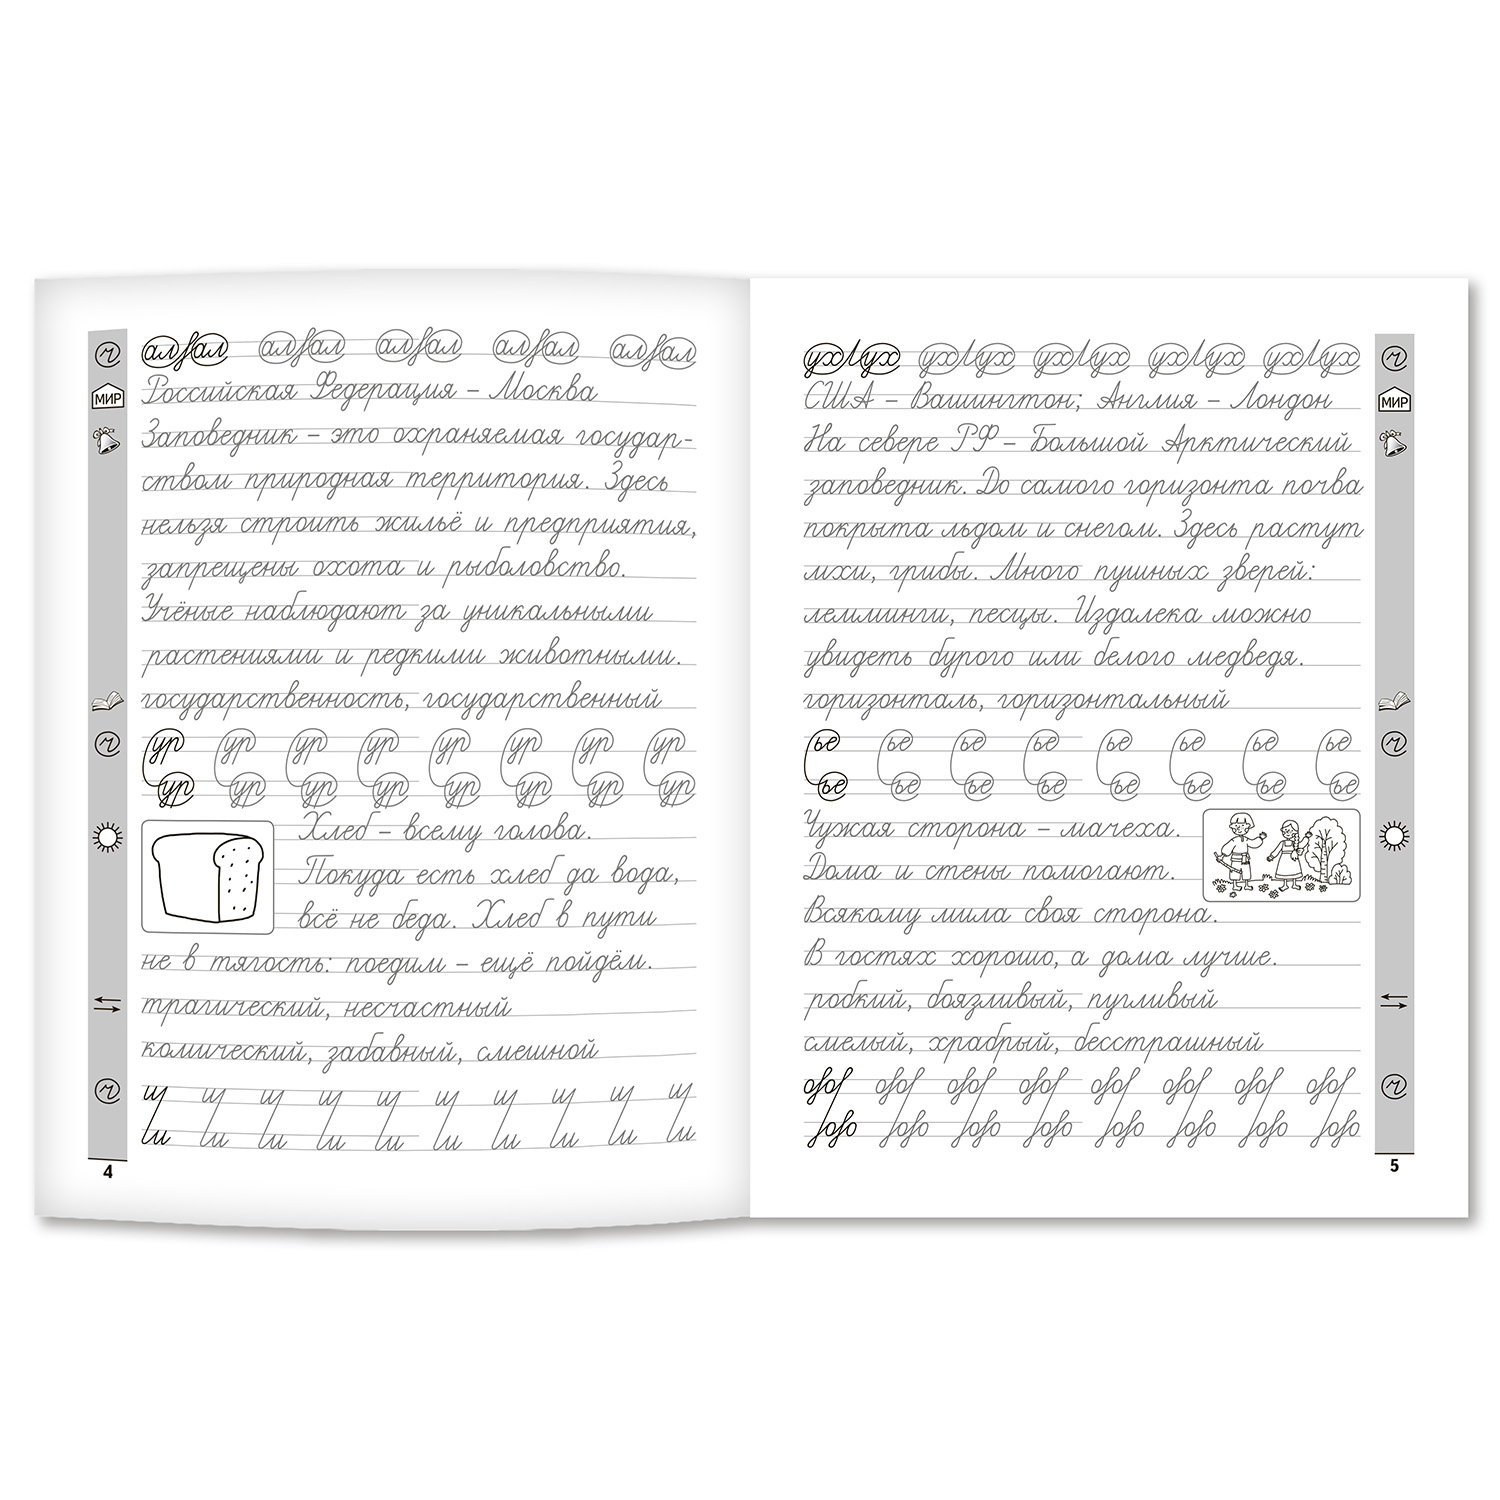 алfал алfал алfал алfал алfал
МИР
Российская Федерация – Москва
Заповедник – это охраняемая государ-
ством природная территория. Здесь
нельзя строить жильё и предприятия,
запрещены охота и рыболовство.
Учёные наблюдают за уникальными
растениями и редкими животными.
государственность, государственный
ур ур ур ур ур ур ур ур
ур ур ур ур ур ур ур ур
Хлеб – всему голова.
Покуда есть хлеб да вода,
всё не беда. Хлеб в пути
не в тягость: поедим – ещё пойдём.
трагический, несчастный
комический, забавный, смешной
4
ух ух ух ух ух ух ух ух ух ух
МИР
США – Вашингтон; Англия – Лондон
На севере РФ – Большой Арктический
заповедник. До самого горизонта почва
покрыта льдом и снегом. Здесь растут
мхи, грибы. Много пушных зверей:
лемминги, песцы. Издалека можно
увидеть бурого или белого медведя.
горизонталь, горизонтальный
ье ье ье ье ье ье ье ье
ье ье ье ье ье ье ье ье
Чужая сторона – мачеха.
Дома и стены помогают.
Всякому мила своя сторона.
В гостях хорошо, а дома лучше.
робкий, боязливый, пугливый
смелый, храбрый, бесстрашный
5